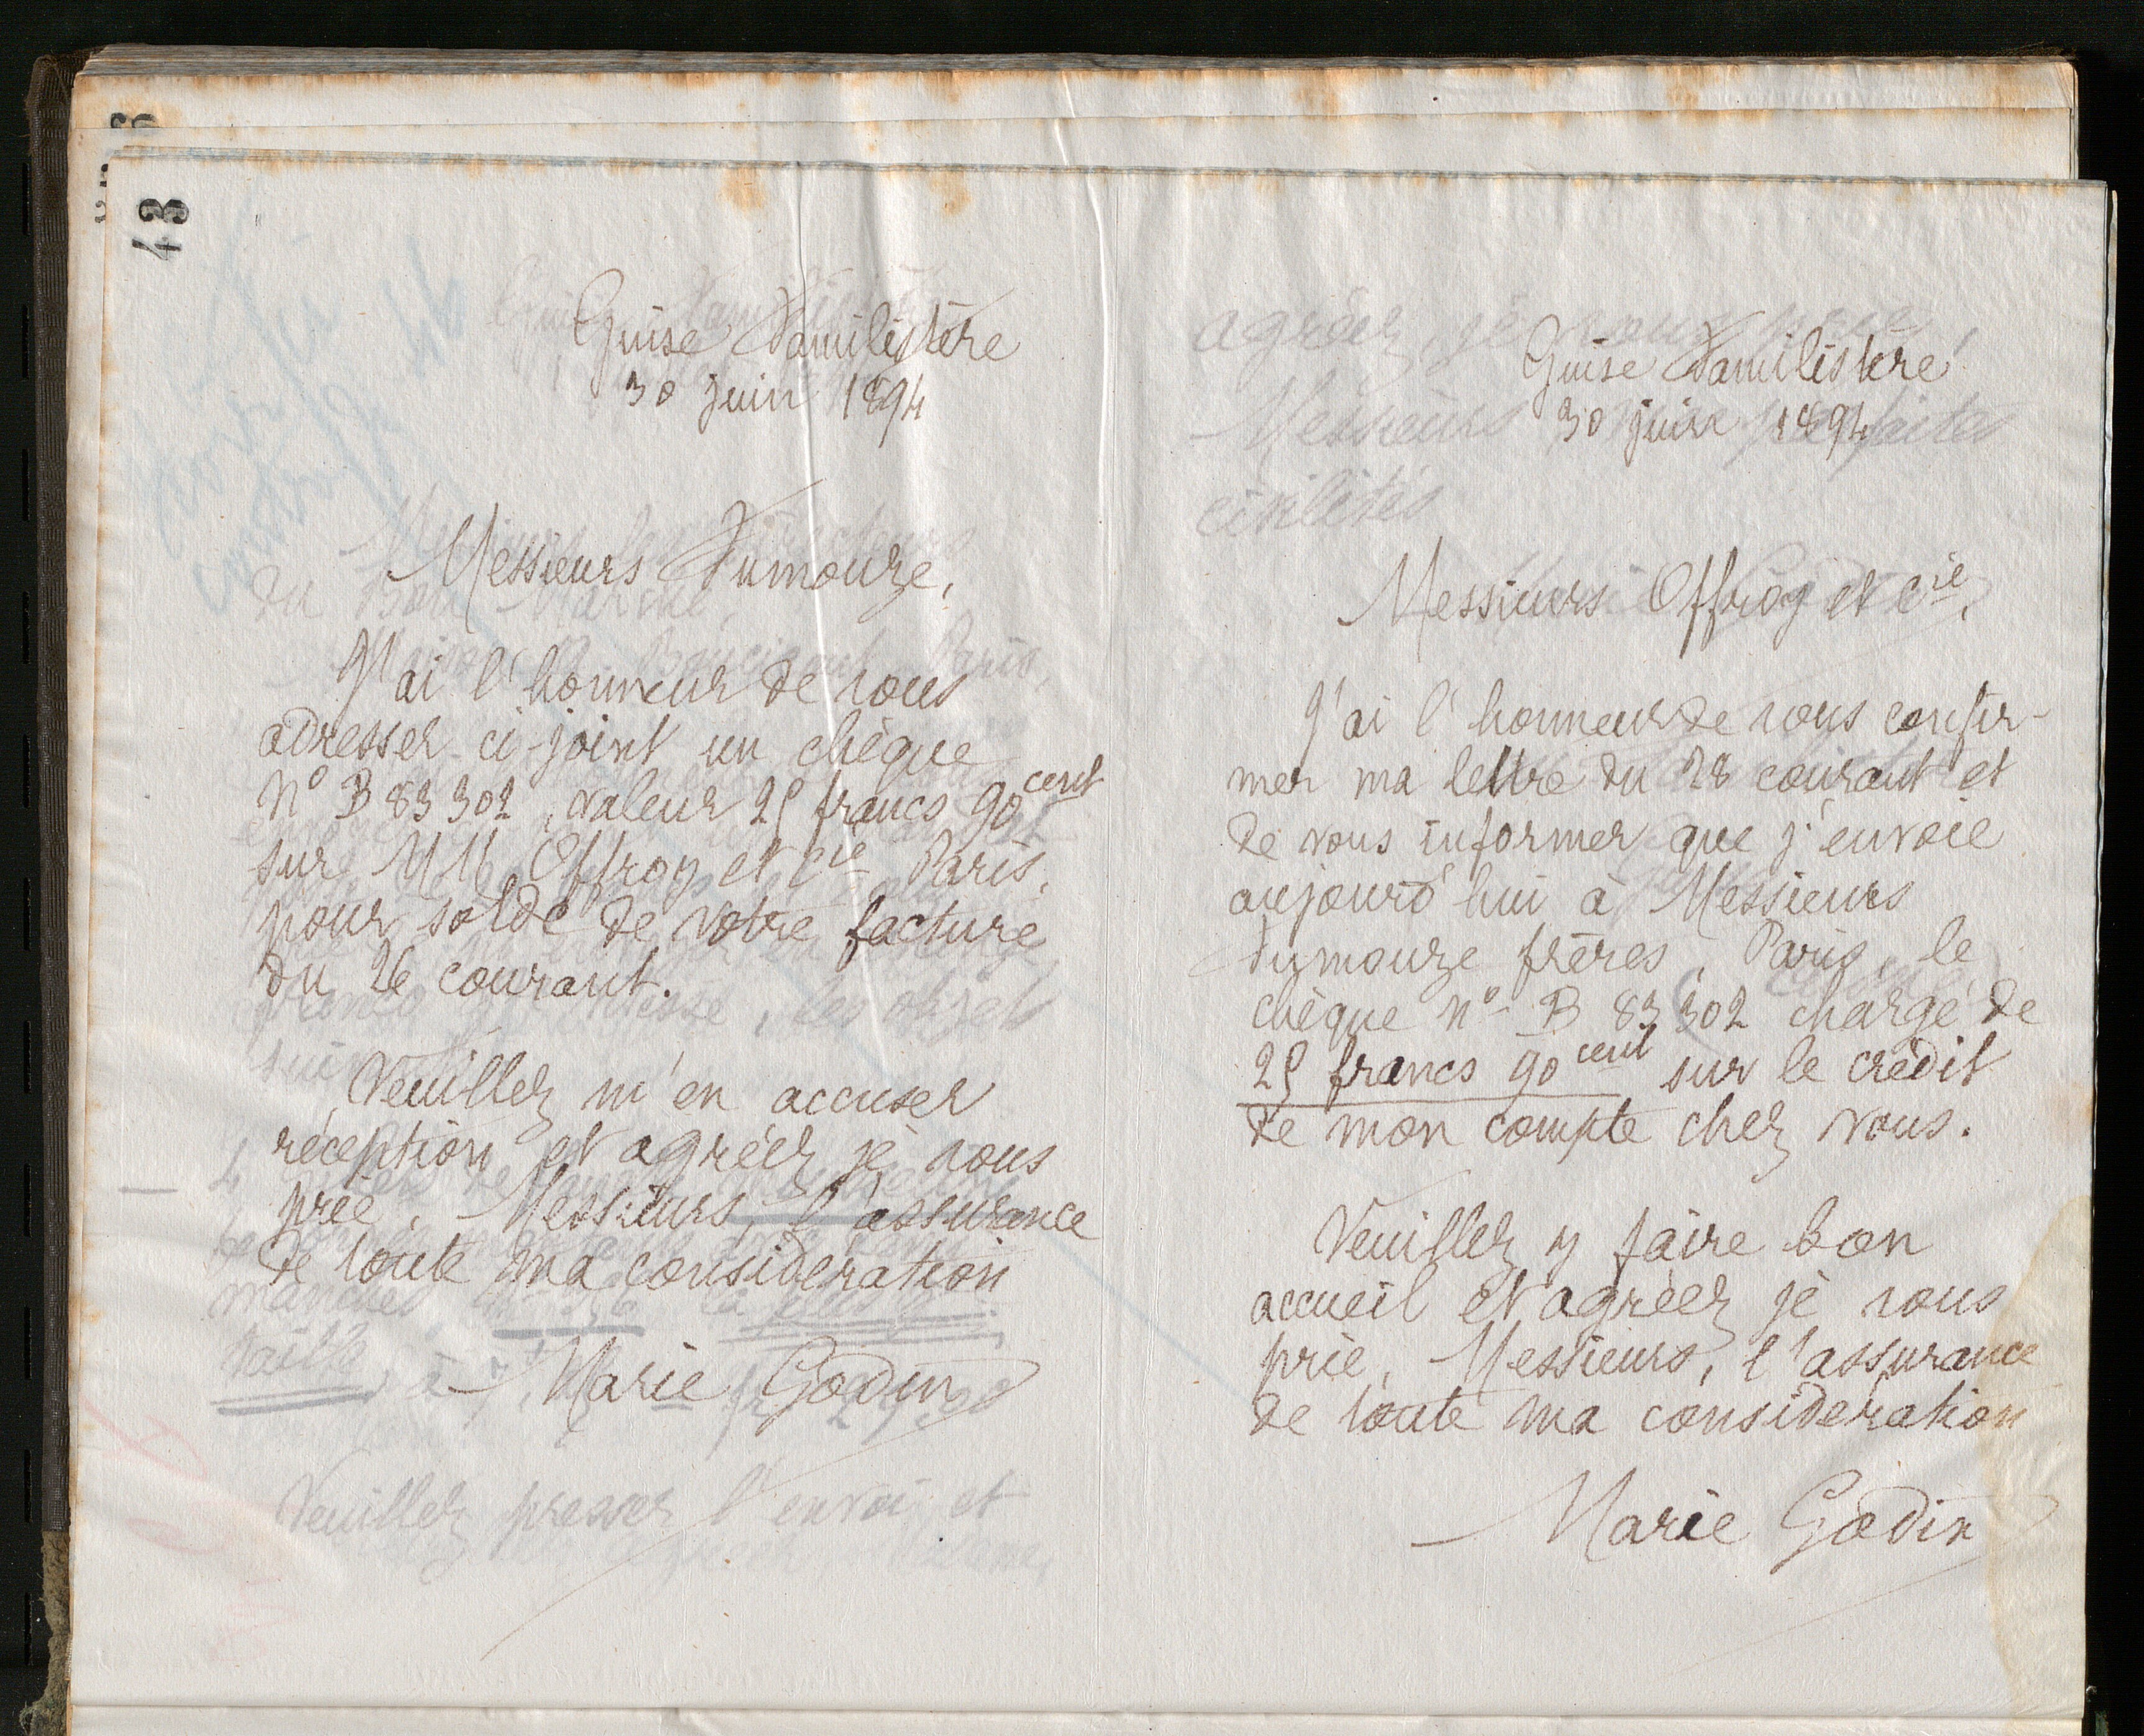 43
Guise Familistère
30 juin 1894
Messieurs Fumouze,
J'ai l'honneur de vous
adresser ci-joint un chèque
N° B 83302, valeur 25 francs 90 cent
sur MM Offroy et Cie Paris,
pour solde de votre facture
du 26 courant.
Veuillez m'en accuser
réception et agréer, je vous
prie, Messieurs, l'assurance
de toute ma considération
Marie Godin
Guise Familistère
30 juin 1894
Messieurs Offroy et Cie,
J'ai l'honneur de vous confir-
mer ma lettre du 28 courant et
de vous informer que j'envoie
aujourd'hui à Messieurs
Fumouze frères, Paris, le
chèque N° B 83302 chargé de
25 francs 90 cent sur le crédit
de mon compte chez vous.
Veuillez y faire bon
accueil et agréer, je vous
prie, Messieurs, l'assurance
de toute ma considération
Marie Godin